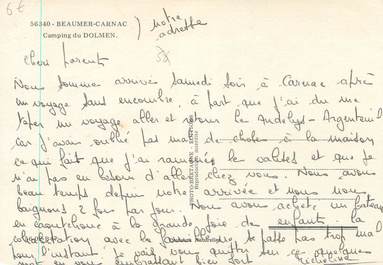 6€
56340 - BEAUMER-CARNAC
Camping du DOLMEN.
) notre
adresse
Chers parents
Nous somme arrivés samedi soir à Carnac après
un voyage sans encombre, à part que j'ai du me
taper un voyage aller et retour les Andelys - Argenteuil
car j'avais oublié pas mal de choses à la maison
ce qui fait que j'ai ramené les valises et que je
n'ai pas eu besoin d'aller chez vous. Nous avons
beau temps depuis notre arrivée et nous nous
baignons 2 fois par jour. Nous avons acheté un bateau
en caoutchouc à la grande joie des enfants. La
cohabitation avec la famille se passe pas trop mal
pour l'instant. Je vais vous quitter sur ce
en vous embrassant bien fort